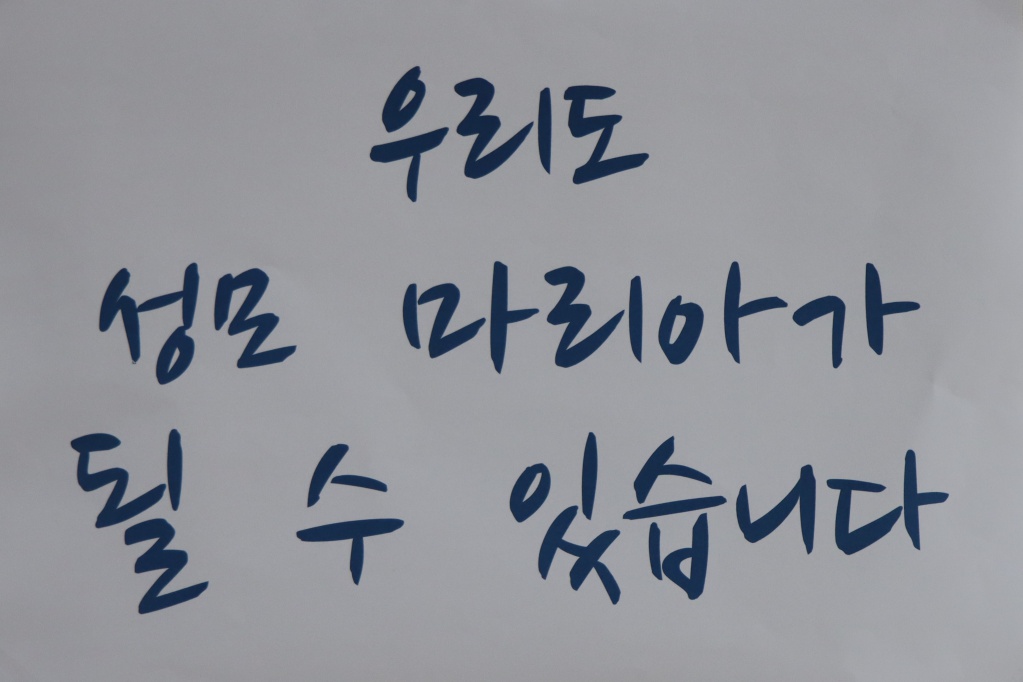 우리도
성모 마리아가
될 수 있습니다